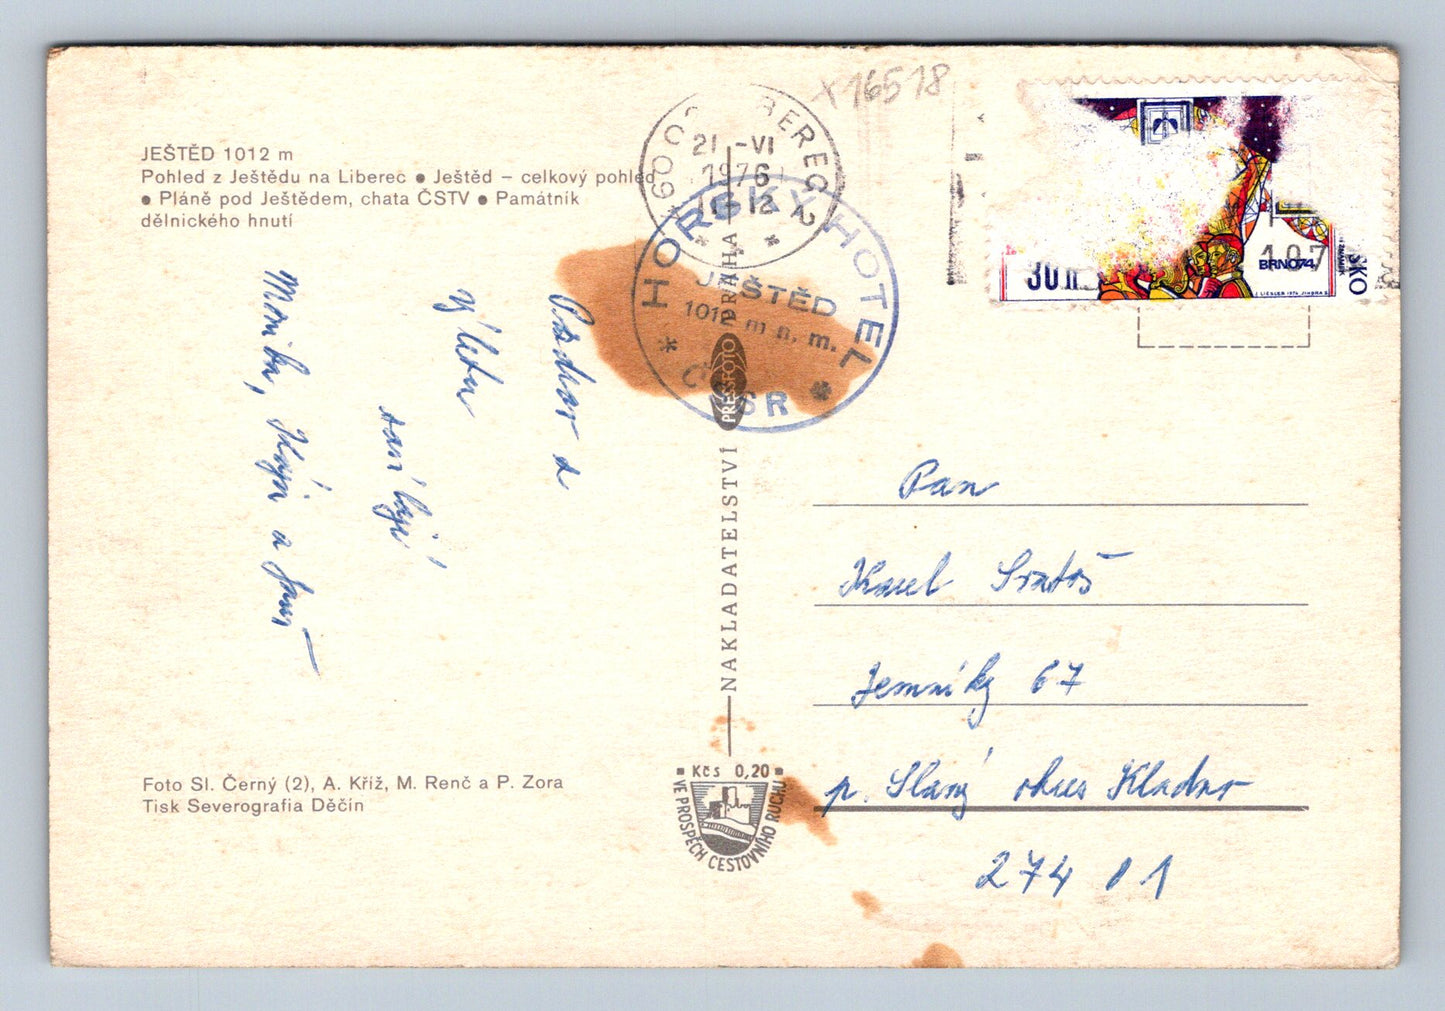 JEŠTĚD 1012 m
Pohled z Ještědu na Liberec ● Ještěd – celkový pohled
● Pláně pod Ještědem, chata ČSTV ● Památník
dělnického hnutí
Pozdrav z
Výletu
Monika,
a
Foto Sl. Černý (2), A. Kříž, M. Renč a P. Zora
Tisk Severografia Děčín
NAKLADATELSTVÍ PRESSFOTO PRAHA
Kčs 0,20
VE PROSPĚCH CESTOVNÍHO RUCHU
X16518
21 -VI
1976
12
HORSKÝ HOTEL
JEŠTĚD
1012 m n. m.
ČSSR
30 h
BRNO74
J. LIESLER 1974
197
Pan
Karel
Jemníky 67
p. Slaný okres Kladno
274 01